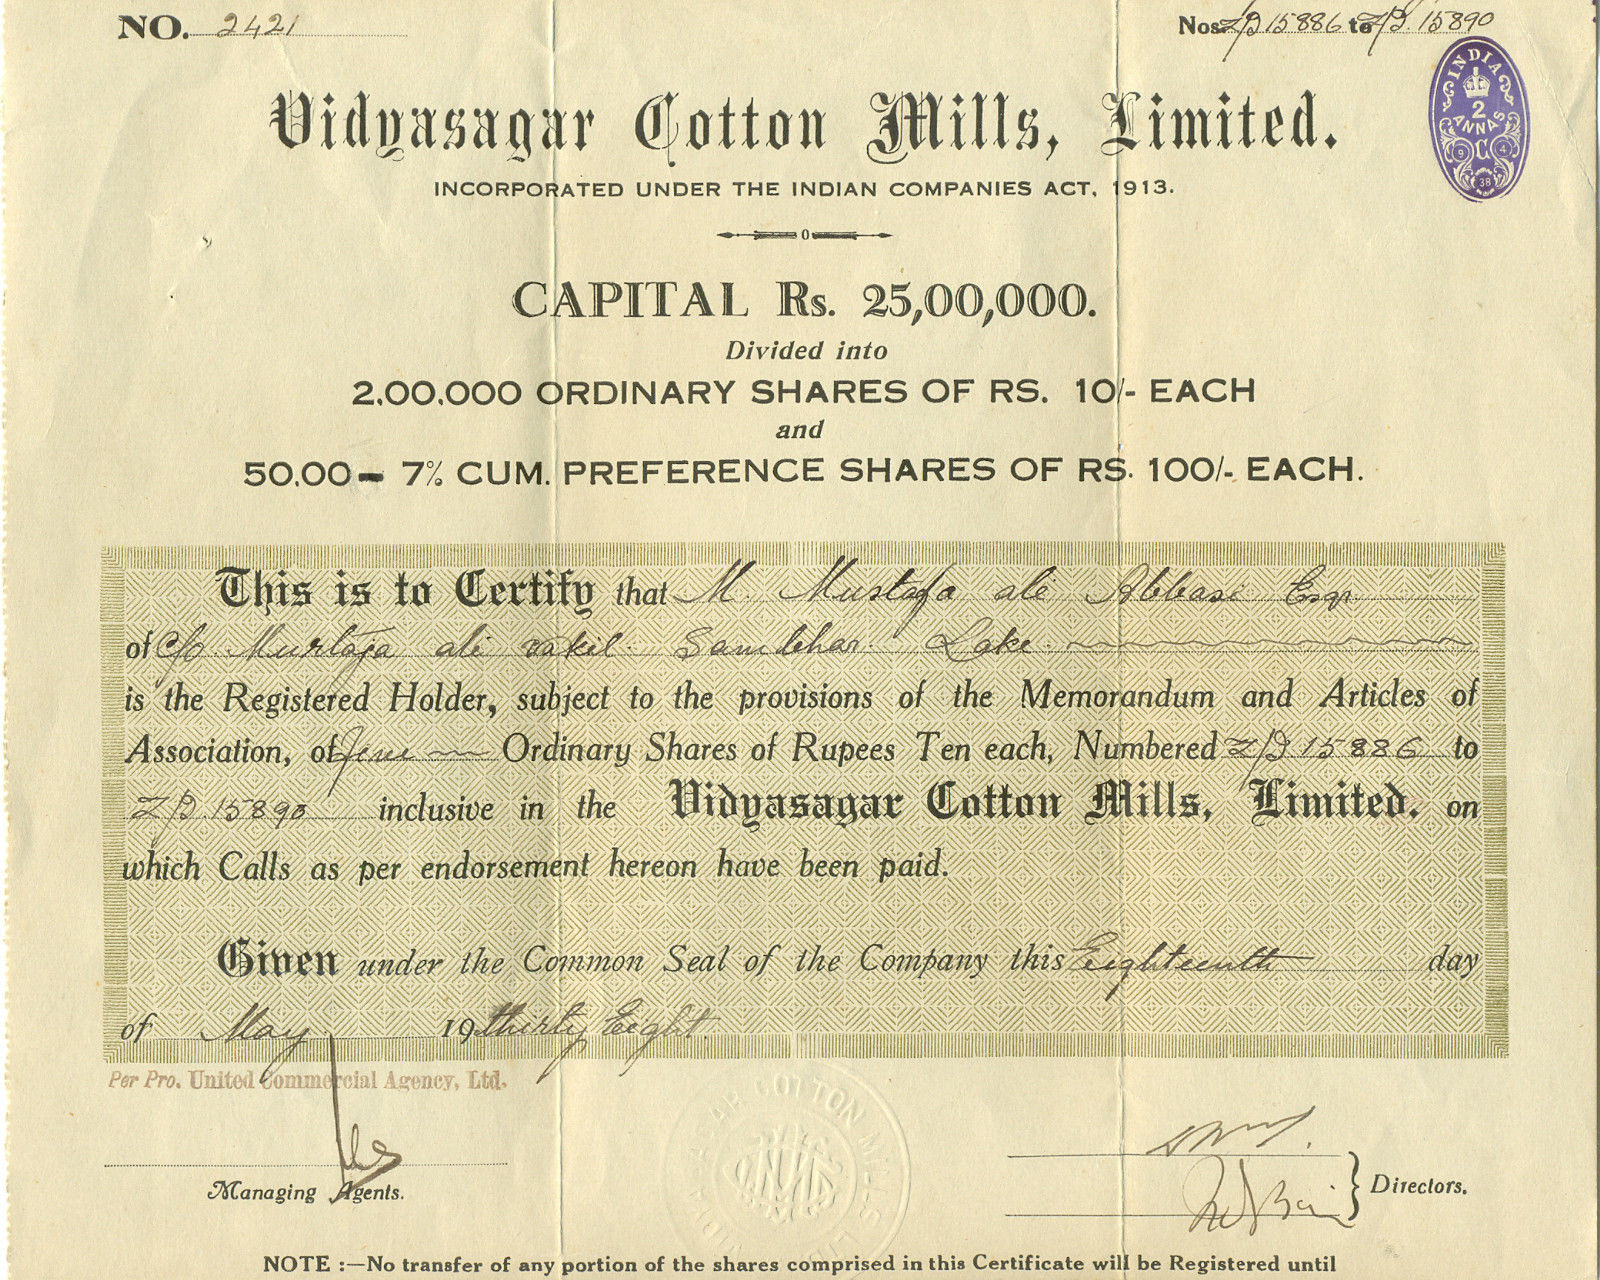 NO. 2421
Nos. Z/D 15886 to Z/D. 15890
INDIA
2
ANNAS
9 C 4
38
Vidyasagar Cotton Mills, Limited.
INCORPORATED UNDER THE INDIAN COMPANIES ACT, 1913.
0
CAPITAL Rs. 25,00,000.
Divided into
2,00,000 ORDINARY SHARES OF RS. 10/- EACH
and
50,00- 7% CUM. PREFERENCE SHARES OF RS. 100/- EACH.
This is to Certify that M. Mustafa ali Abbasi Esqr.
of C/o. Murtaza ali vakil. Sambhar. Lake.
is the Registered Holder, subject to the provisions of the Memorandum and Articles of
Association, of five Ordinary Shares of Rupees Ten each, Numbered Z/D 15886 to
Z/D. 15890 inclusive in the Vidyasagar Cotton Mills, Limited. on
which Calls as per endorsement hereon have been paid.
Given under the Common Seal of the Company this Eighteenth day
of May 19 thirty Eight.
Per Pro. United Commercial Agency, Ltd.
COTTON MILLS
Managing Agents.
Directors.
NOTE :—No transfer of any portion of the shares comprised in this Certificate will be Registered until